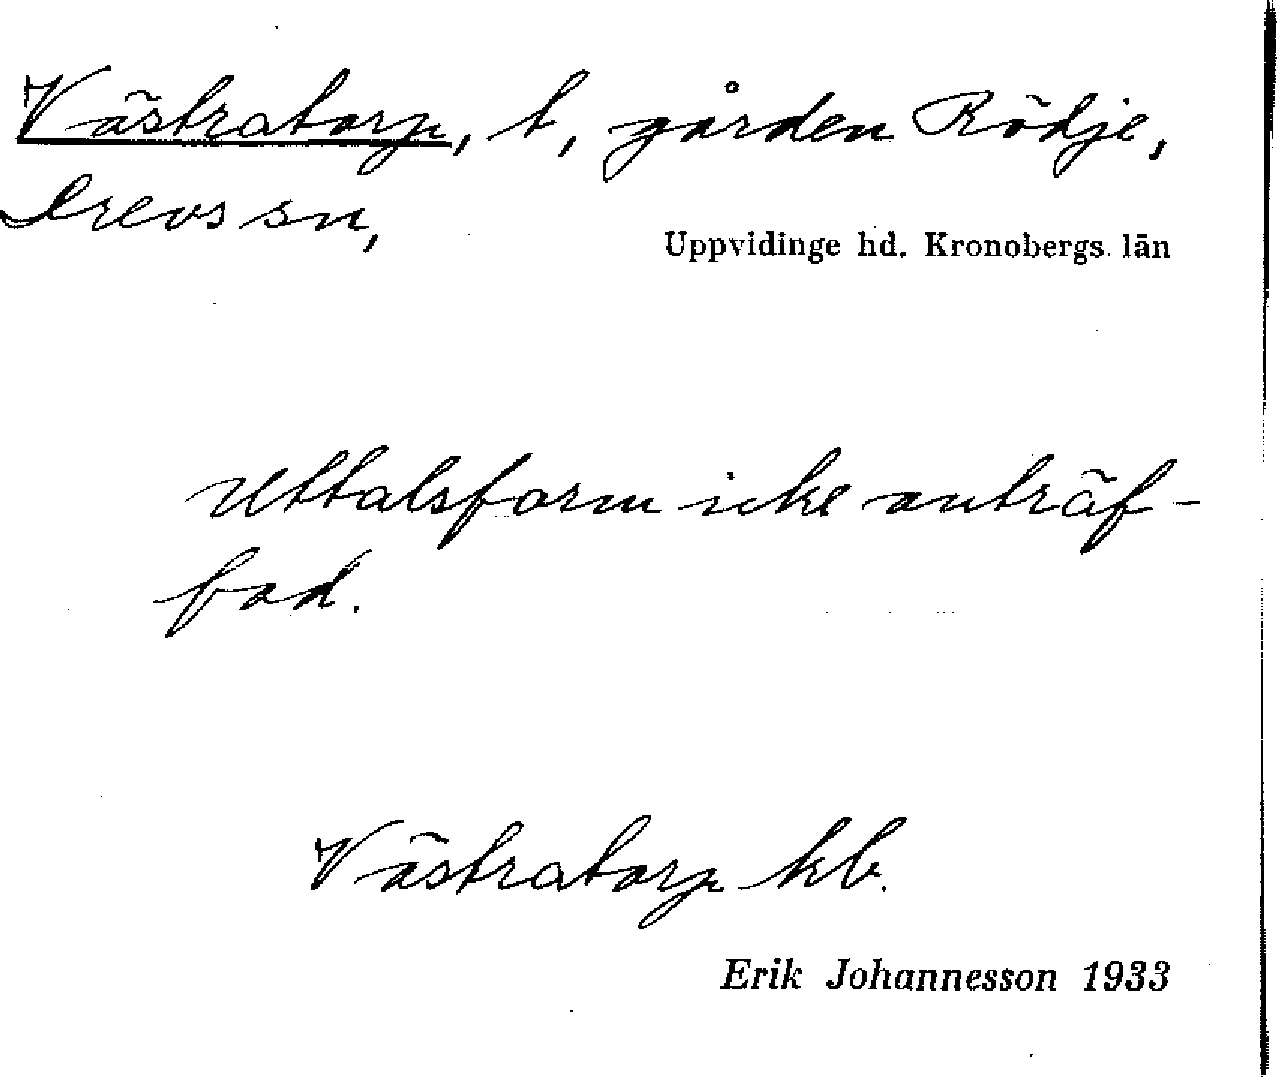 Västratorp, t, gården Rödje,
Drevs sn,
Uppvidinge hd. Kronobergs län
Uttalsform icke anträf-
fad.
Västratorp kb.
Erik Johannesson 1933